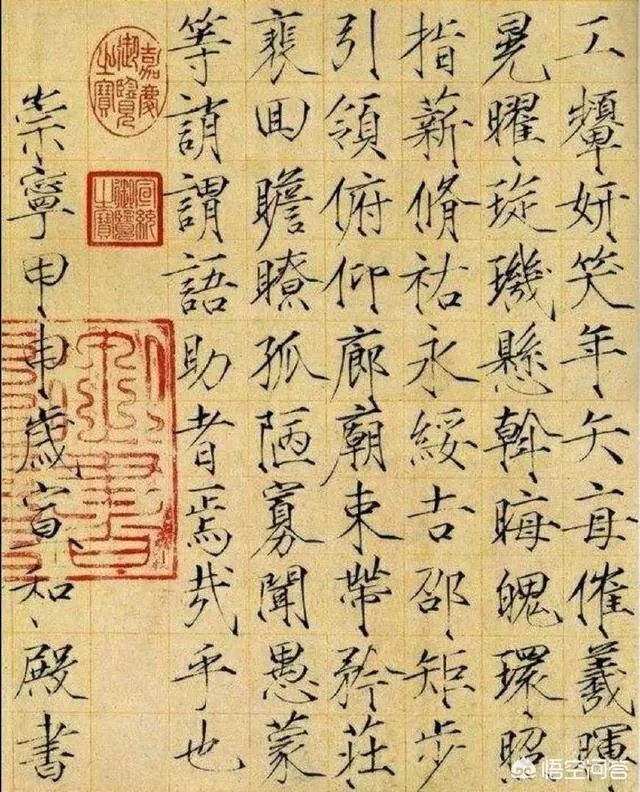 工顰妍笑年矢每催羲暉
晃曜琁璣懸斡晦魄環昭
指薪脩祐永綏吉邵矩步
引領俯仰廊廟束帶矜莊
裵回瞻瞭孤陋寡聞愚蒙
等誚謂語助者焉哉乎也
崇寧甲申歲宣和殿書
嘉慶御覽之寶
宣統御覽之寶
悟空问答